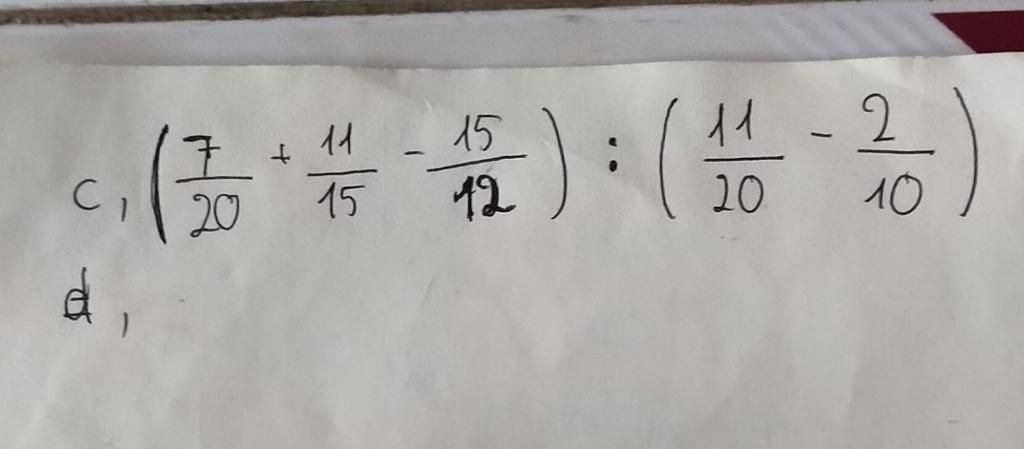 c, (7/20 + 11/15 - 15/12) : (11/20 - 2/10)
d,